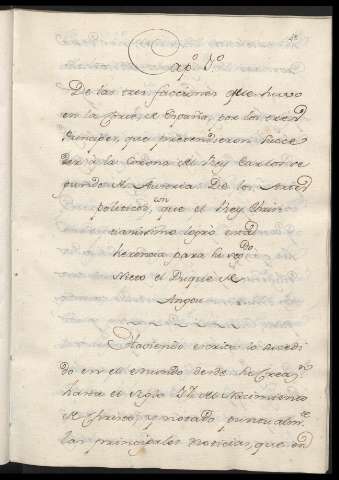 Cap.º 3.º
De las tres facciones que huvo
en la Corte de España, por los tres
Principes, que pretendieron succe
der à la Corona del Rey Carlos se
gundo de Austria. De los Artes
politicos, con que el Rey Chris
tianissimo logrò esta
herencia para su seg.do
Nieto el Duque de
Anjou
Haviendo escrito lo sucedi
do en el mundo desde la Creaz.on
hasta el siglo 17. del Nacimiento
de Christo, y notado puntualm.te
las principales noticias, que en